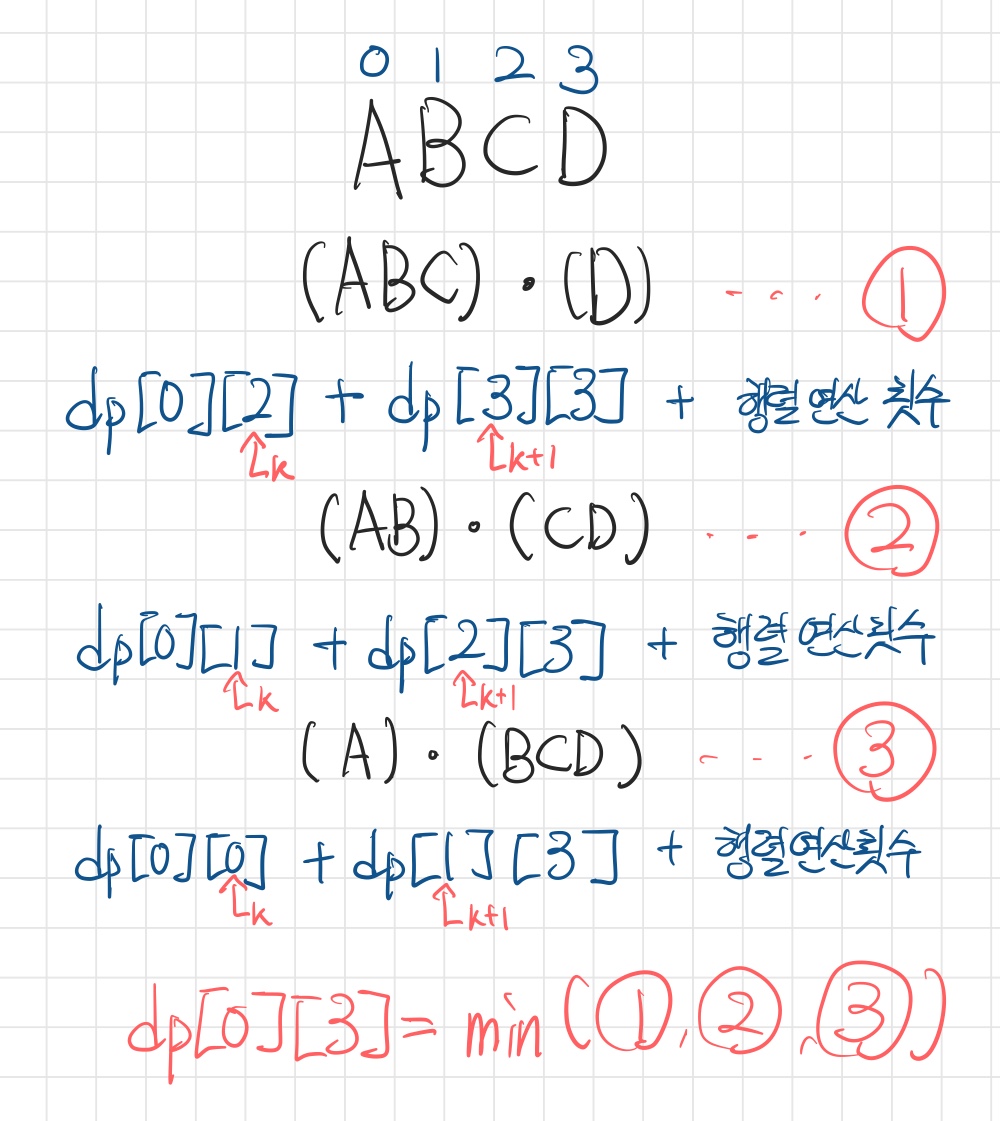 0 1 2 3
ABCD
(ABC) · (D) ... ①
dp[0][2] + dp[3][3] + 행렬 연산 횟수
↑k ↑k+1
(AB) · (CD) .... ②
dp[0][1] + dp[2][3] + 행렬 연산 횟수
↑k ↑k+1
(A) · (BCD) .... ③
dp[0][0] + dp[1][3] + 행렬 연산 횟수
↑k ↑k+1
dp[0][3] = min(①, ②, ③)